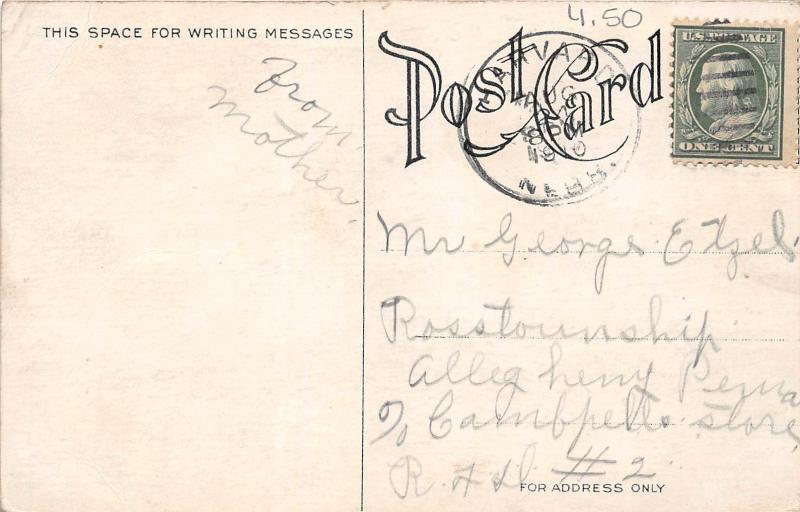 4.50
THIS SPACE FOR WRITING MESSAGES
Post Card
HARVARD
AUG
1910
NEBR.
U.S. POSTAGE
ONE CENT
From
Mother.
Mr George Etzel
Rosstownship
Allegheny Penna
c/o Cambpells store
R. F. D. #2
FOR ADDRESS ONLY